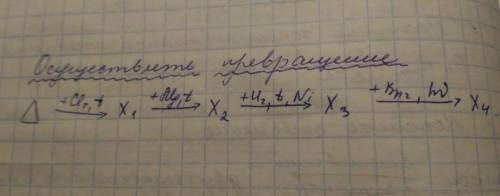 Осуществить превращение
△ +Cl₂,t → X₁ +Mg,t → X₂ +H₂,t,Ni → X₃ +Br₂,hν → X₄.